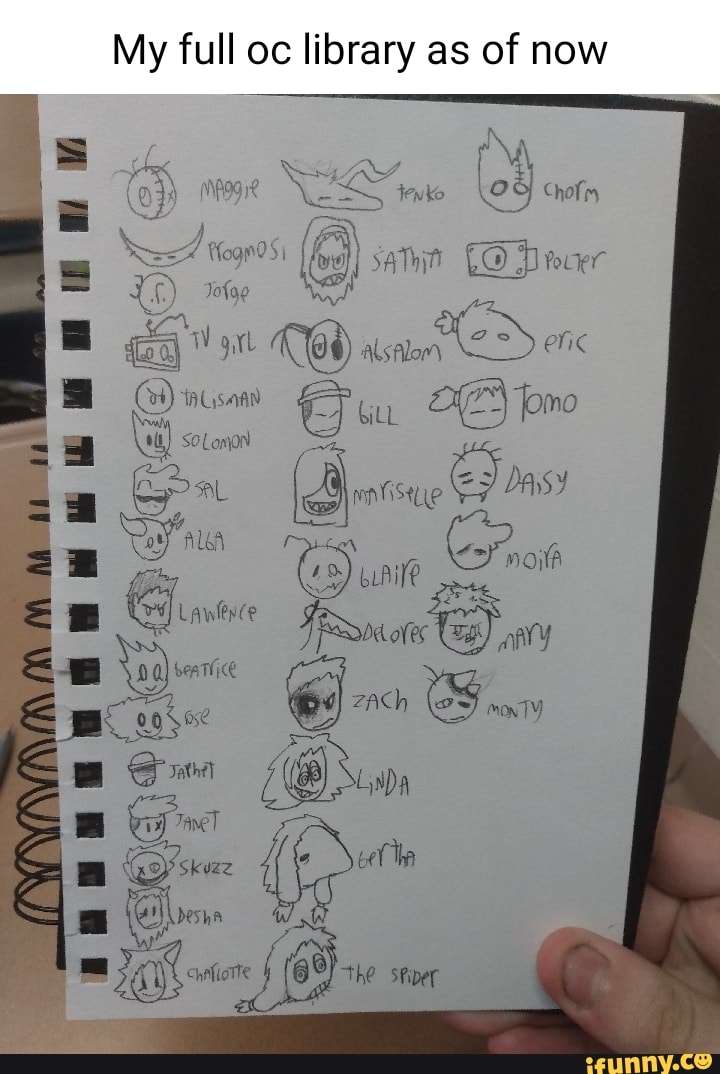 My full oc library as of now
MAggie
tenko
Chorm
Progmosi
SAThin
Polter
Jorge
TV girl
Absalom
eric
TALISMAN
bill
Tomo
SOLOMON
SAL
mariselle
DAisy
ALBA
bLAire
moirA
LAwrence
Delores
mary
beatrice
ZACh
monty
rose
Japhet
LiNDA
JANeT
bertha
Skuzz
Desha
Charlotte
the spider
ifunny.co